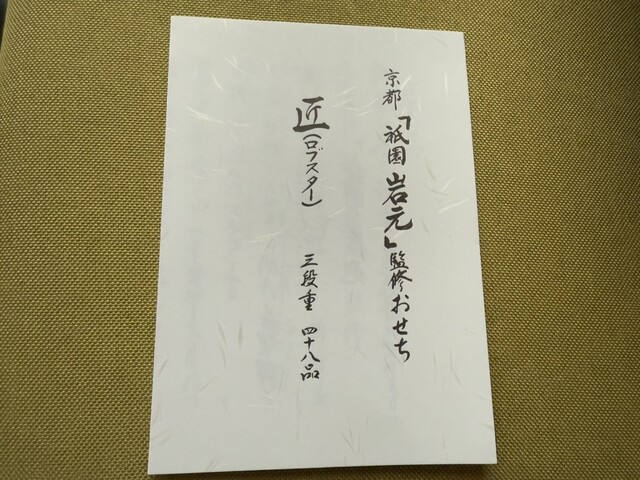 京都「祇園 岩元」監修おせち
匠(ロブスター) 三段重 四十八品